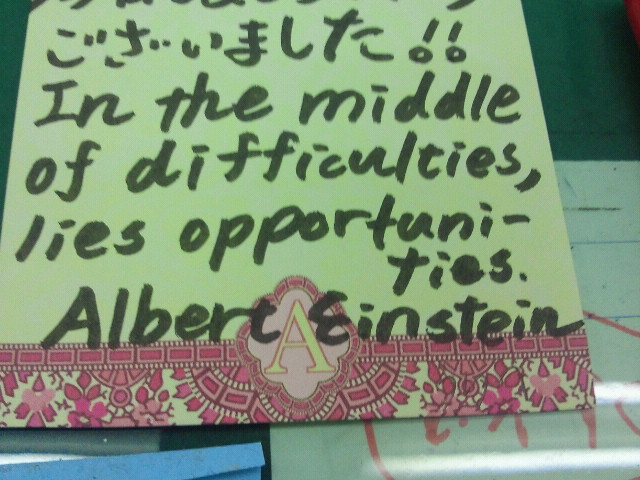 ございました!!
In the middle
of difficulties,
lies opportuni-
ties.
Albert Einstein
A